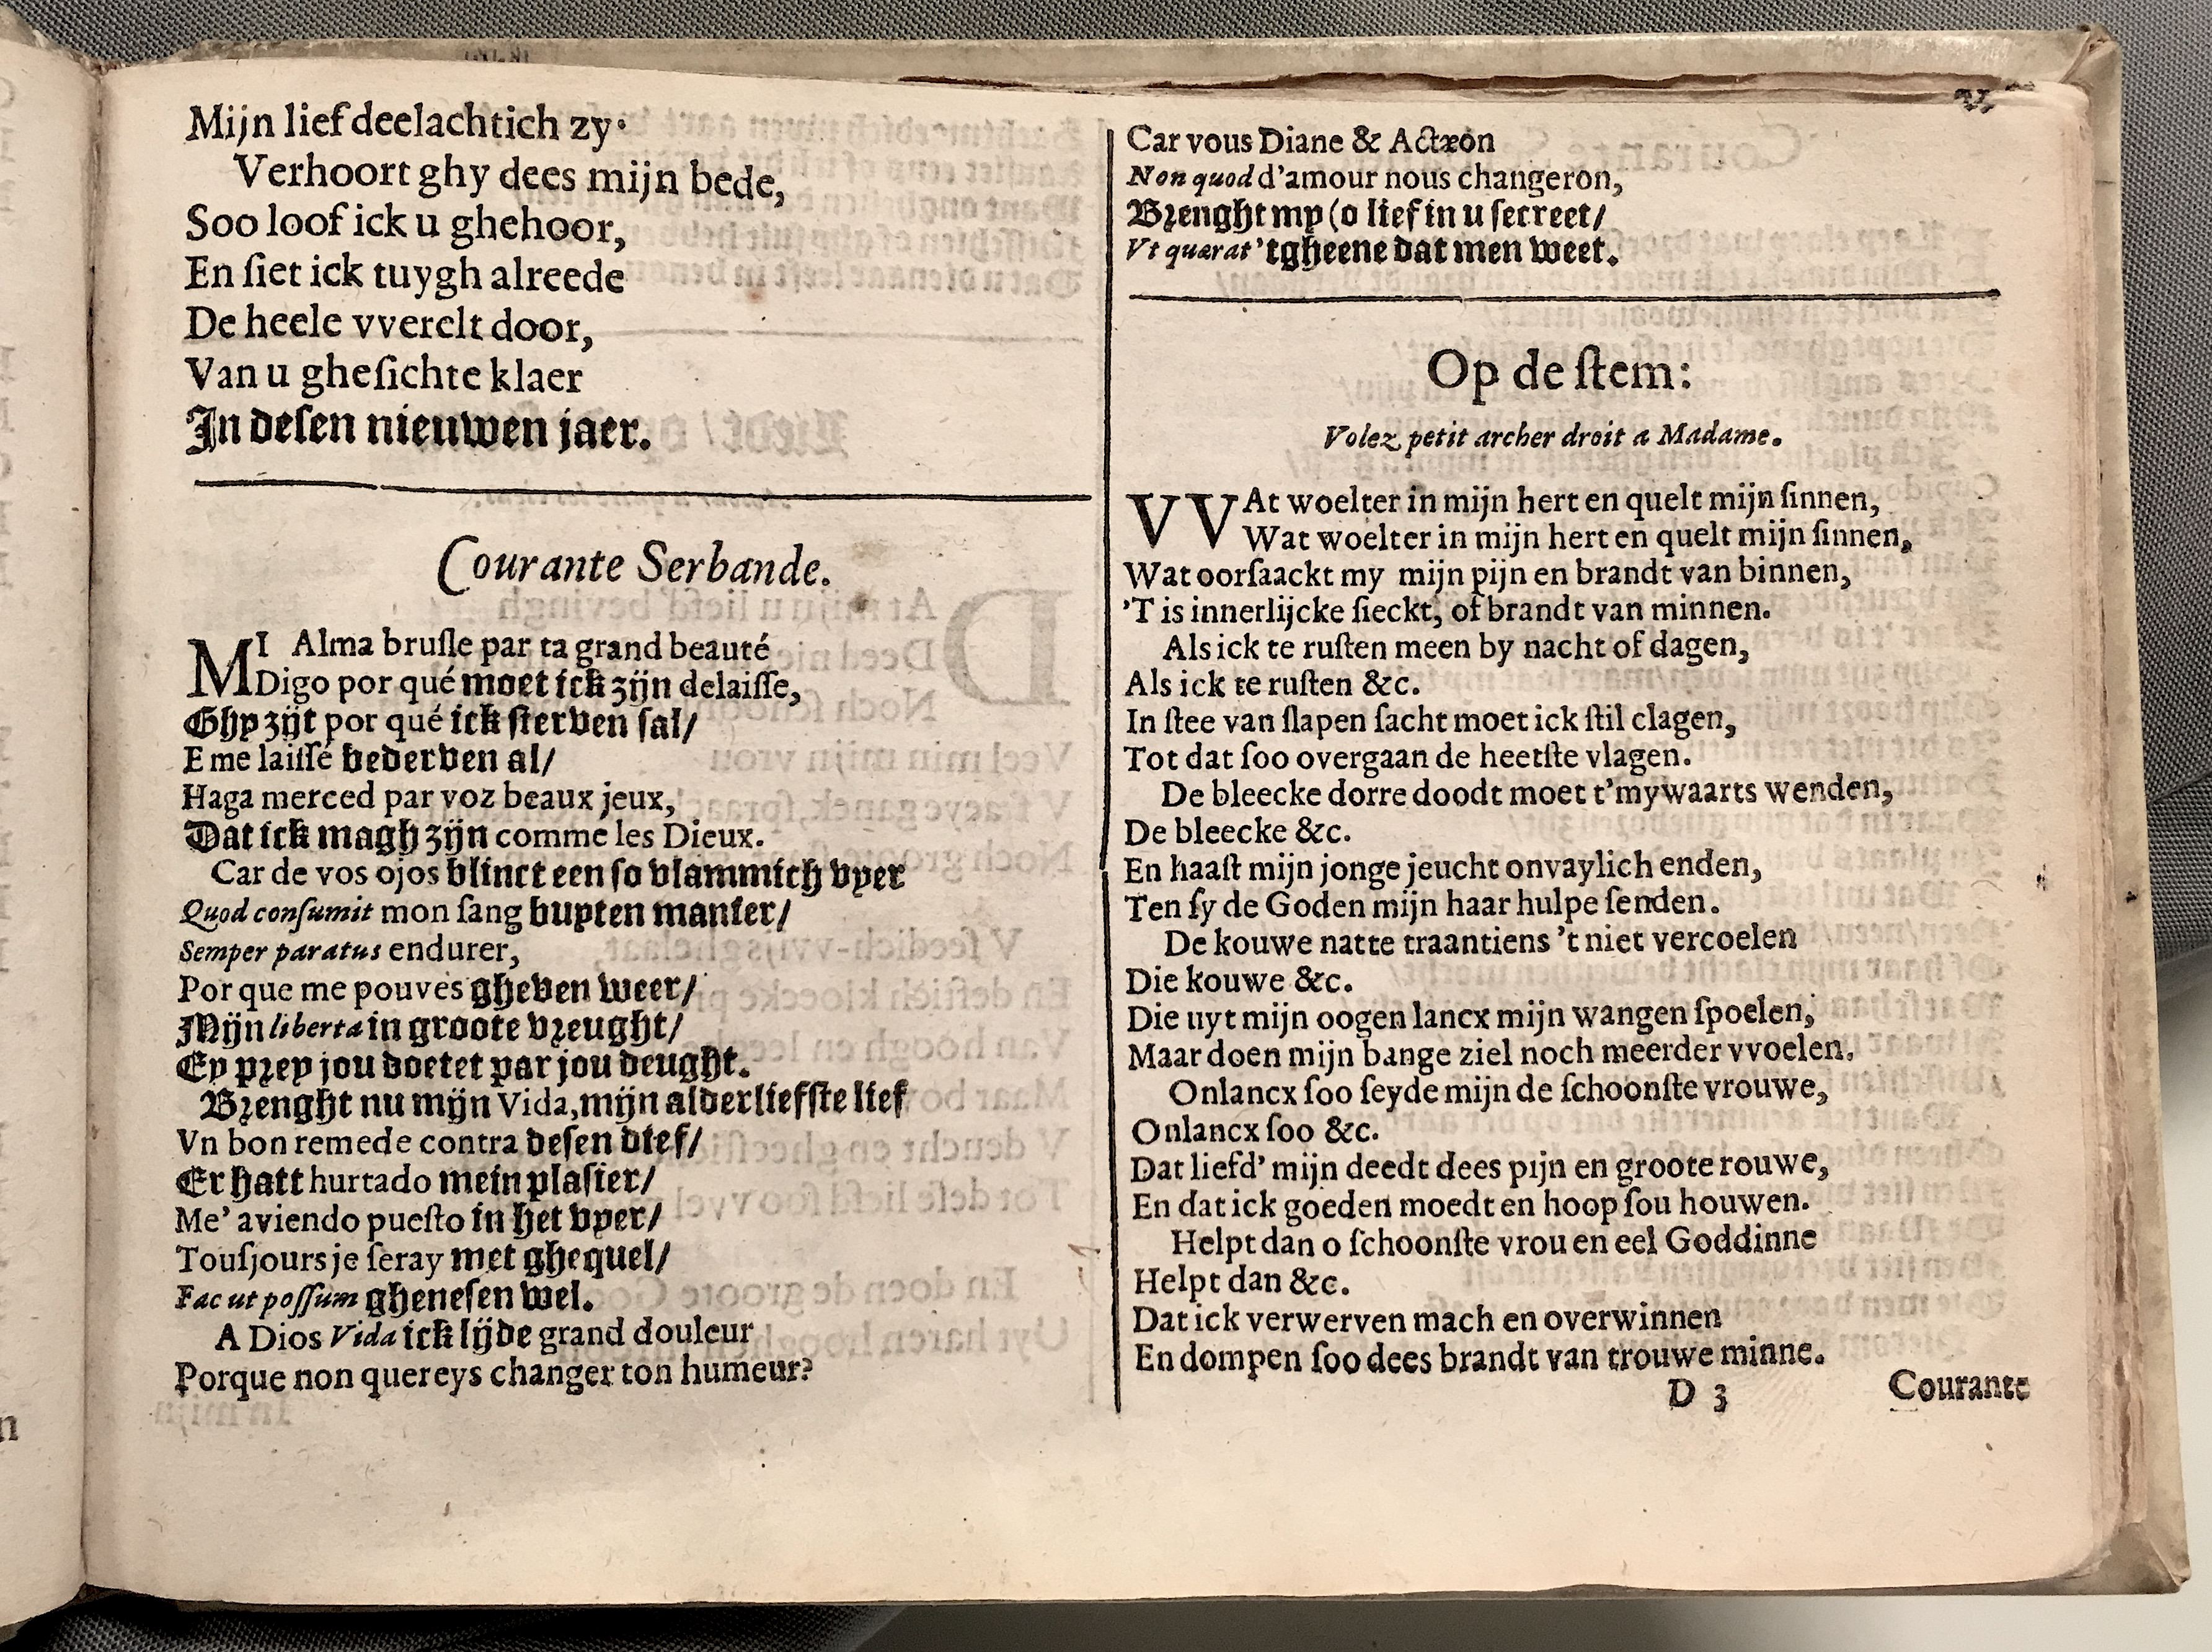 Mijn lief deelachtich zy.
Verhoort ghy dees mijn bede,
Soo loof ick u ghehoor,
En ſiet ick tuygh alreede
De heele vverelt door,
Van u gheſichte klaer
In deſen nieuwen jaer.
Courante Serbande.
MI Alma bruſle par ta grand beauté
Digo por qué moet ick zijn delaiſſe,
Ghy zijt por qué ick ſterven ſal/
E me laiſſé bederven al/
Haga merced par voz beaux jeux,
Dat ick magh zijn comme les Dieux.
Car de vos ojos blinct een ſo vlammich vyer
Quod conſumit mon ſang buyten manier/
Semper paratus endurer,
Por que me pouvés gheven weer/
Mijn liberta in groote vreught/
Ey prey jou voetet par jou deught.
Brenght nu mijn Vida, mijn alderliefſte lief
Vn bon remede contra deſen dief/
Er hatt hurtado mein plaſier/
Me' aviendo pueſto in het vyer/
Touſjours je ſeray met ghequel/
Fac ut poſſum gheneſen wel.
A Dios Vida ick lijde grand douleur
Porque non quereys changer ton humeur?
Car vous Diane & Actæon
Non quod d'amour nous changeron,
Brenght my (o lief in u ſecreet/
Vt quærat 'tgheene dat men weet.
Op de ſtem:
Volez petit archer droit a Madame.
VVAt woelter in mijn hert en quelt mijn ſinnen,
Wat woelter in mijn hert en quelt mijn ſinnen,
Wat oorſaackt my mijn pijn en brandt van binnen,
'T is innerlijcke ſieckt, of brandt van minnen.
Als ick te ruſten meen by nacht of dagen,
Als ick te ruſten &c.
In ſtee van ſlapen ſacht moet ick ſtil clagen,
Tot dat ſoo overgaan de heetſte vlagen.
De bleecke dorre doodt moet t'mywaarts wenden,
De bleecke &c.
En haaſt mijn jonge jeucht onvaylich enden,
Ten ſy de Goden mijn haar hulpe ſenden.
De kouwe natte traantiens 't niet vercoelen
Die kouwe &c.
Die uyt mijn oogen lancx mijn wangen ſpoelen,
Maar doen mijn bange ziel noch meerder vvoelen.
Onlancx ſoo ſeyde mijn de ſchoonſte vrouwe,
Onlancx ſoo &c.
Dat liefd' mijn deedt dees pijn en groote rouwe,
En dat ick goeden moedt en hoop ſou houwen.
Helpt dan o ſchoonſte vrou en eel Goddinne
Helpt dan &c.
Dat ick verwerven mach en overwinnen
En dompen ſoo dees brandt van trouwe minne.
D 3 Courante